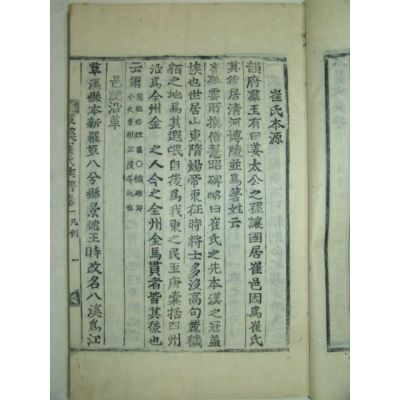 崔氏本源
韻府羣玉有曰姜太公之孫讓國居崔邑因爲崔氏
其後居淸河博陵並爲著姓云
崔孤雲所撰僧慧昭碑略曰崔氏之先本漢之冠盖
族也世居山東隋煬帝東征時將士多沒高句麗穢
貊之地爲其遐氓自後爲我東之民至唐囊括四州
沿爲全州金 之人今之全州金馬貫者皆其後也
云爾
邑號沿革
草溪縣本新羅草八兮縣景德王時改名八溪爲江
溪崔氏族譜卷一 凡例 一